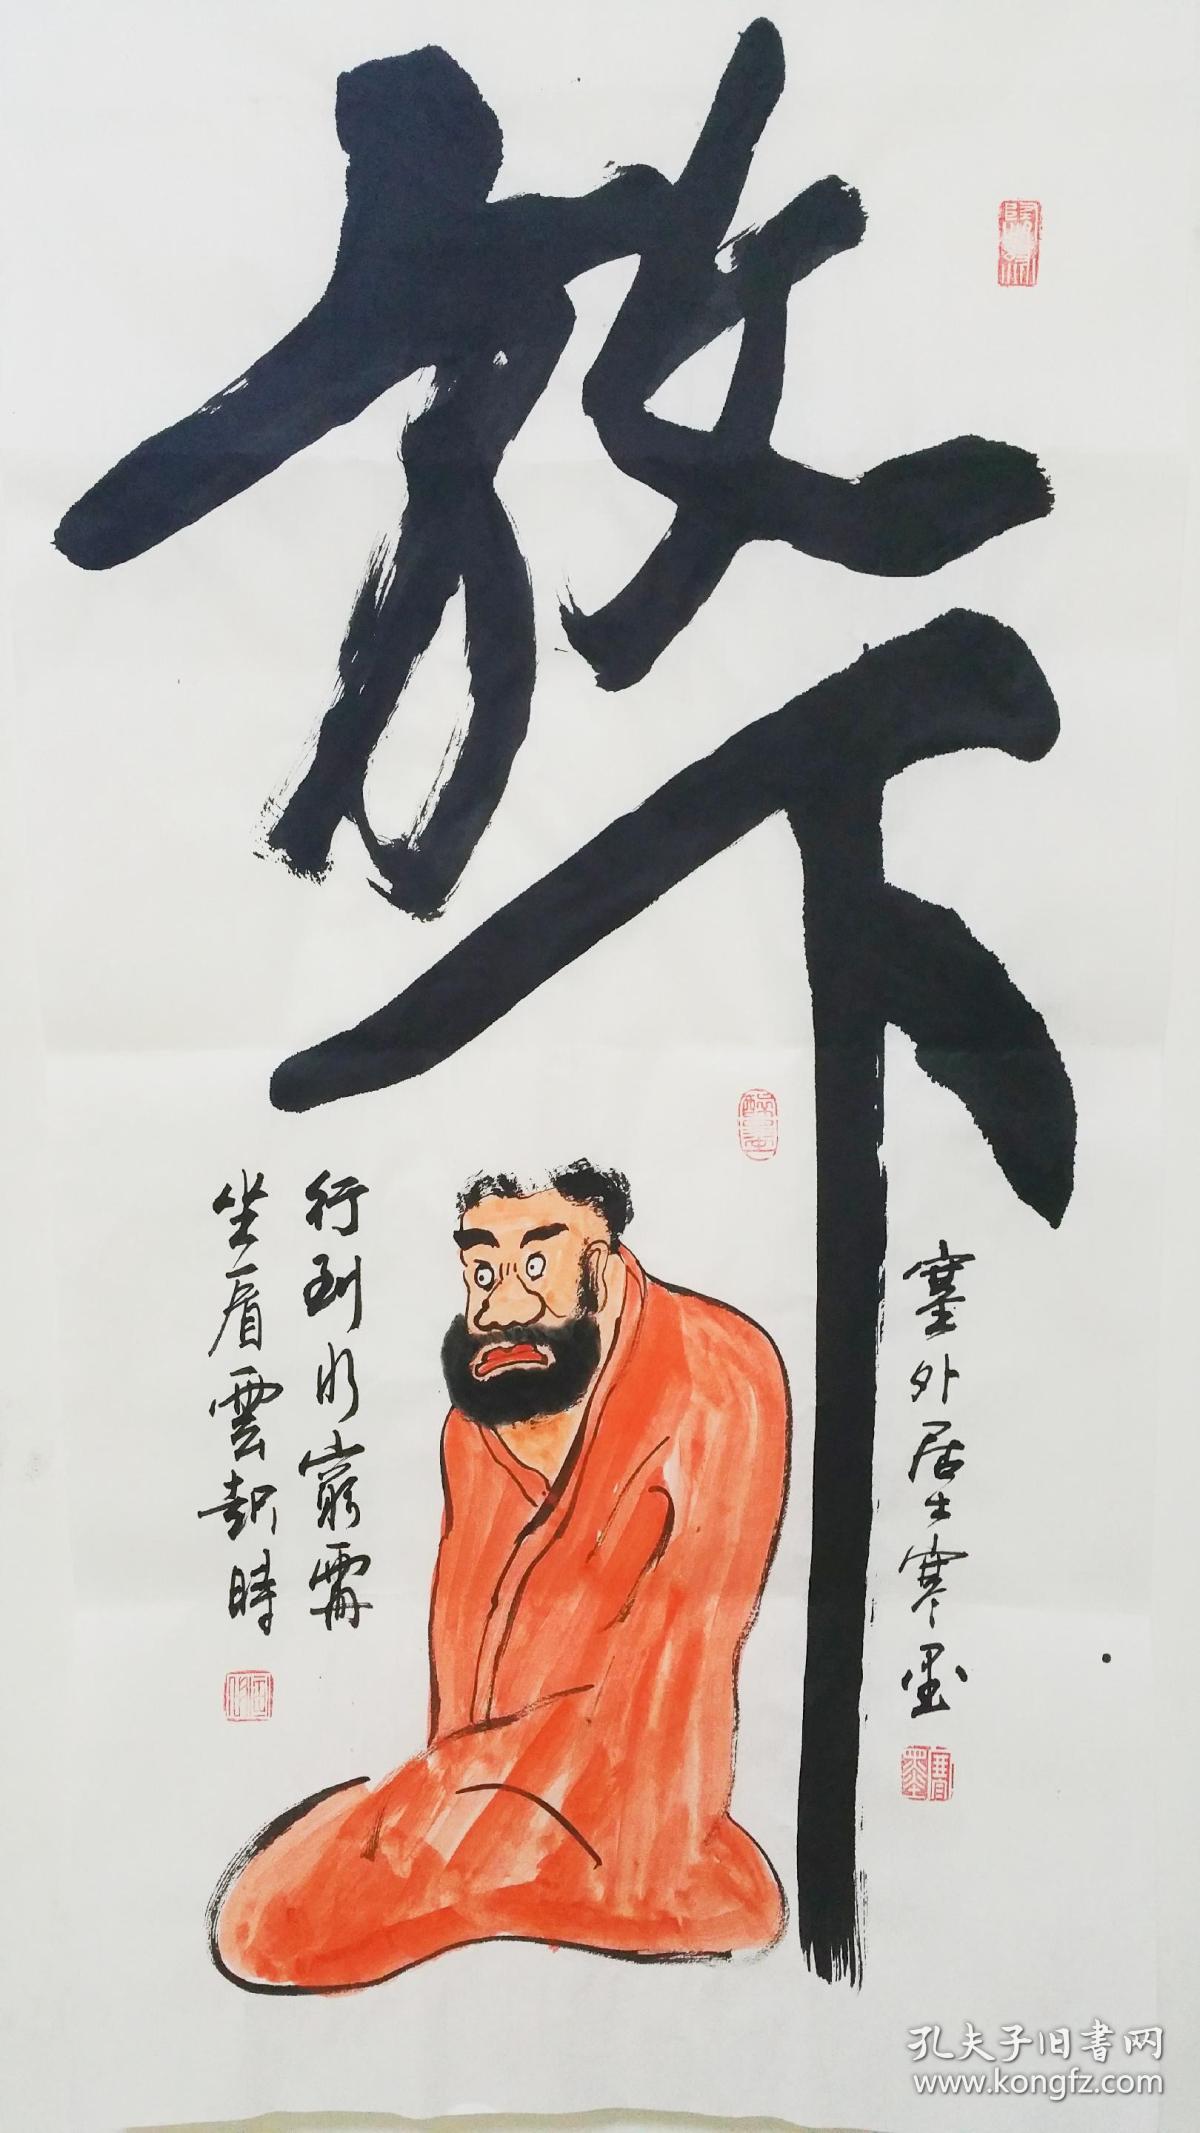 放下
行到水窮處
坐看雲起時
塞外居士寒墨
孔夫子旧书网
www.kongfz.com